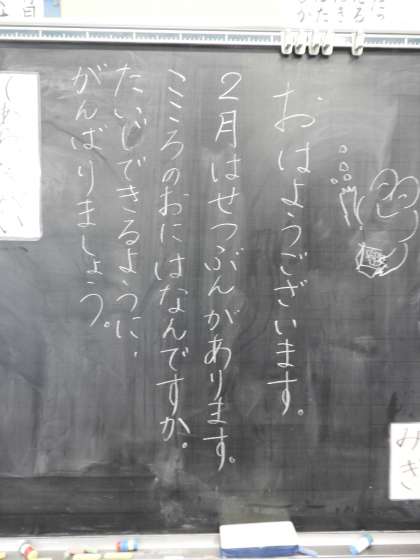 おはようございます。
2月はせつぶんがあります。
こころのおにはなんですか。
たいじできるように、
がんばりましょう。
みき